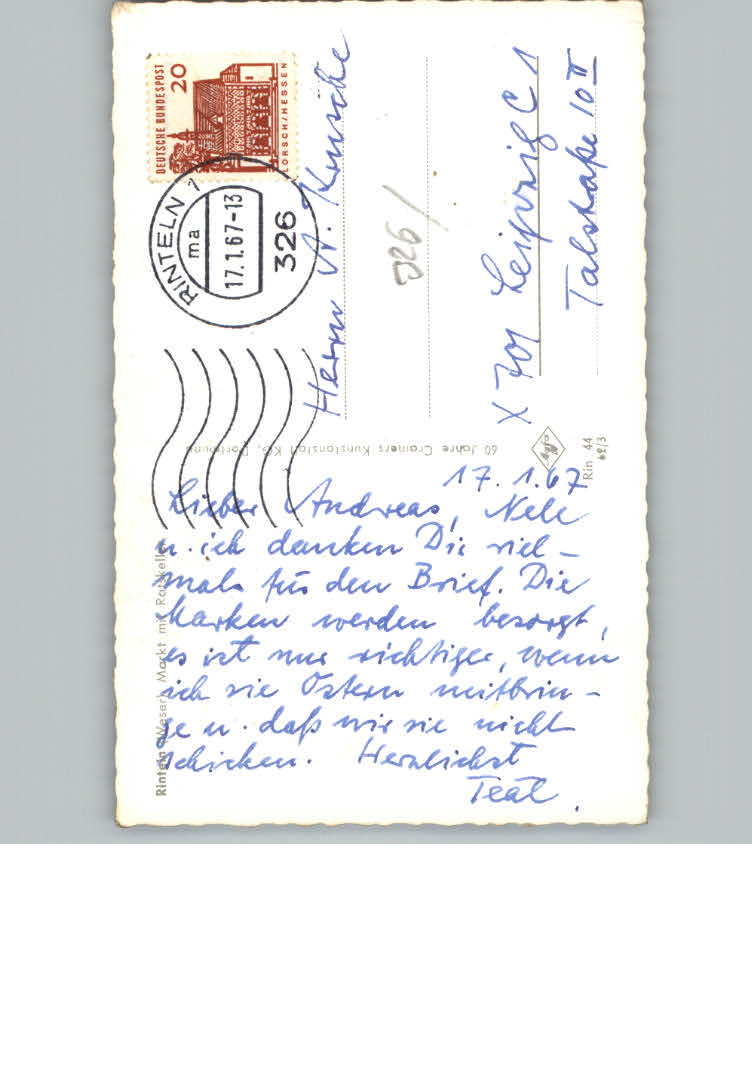 DEUTSCHE BUNDESPOST
20
LORSCH/HESSEN
RINTELN 1
ma
17.1.67-13
326
Herrn A. Krusche
326/
X 701 Leipzig C 1
Talstraße 10 II
60 Jahre Cramers Kunstanstalt KG, Dortmund
Agfa
Rin 44
62/3
Rinteln (Weser), Markt mit Ratskeller
17. 1. 67
Lieber Andreas, Nele
u. ich danken Dir viel-
mals für den Brief. Die
Marken werden besorgt,
es ist nur richtiger, wenn
ich sie Ostern mitbrin-
ge u. daß wir sie nicht
schicken. Herzlichst
Teal.